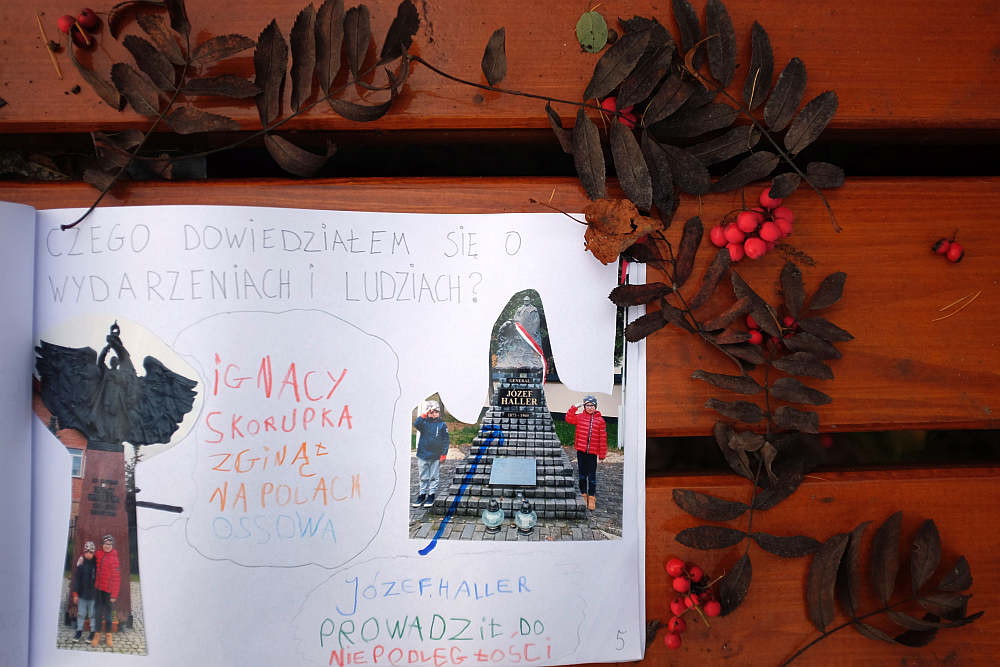 CZEGO DOWIEDZIAŁEM SIĘ O
WYDARZENIACH I LUDZIACH?
IGNACY
SKORUPKA
ZGINĄŁ
NA POLACH
OSSOWA
GENERAŁ
JÓZEF
HALLER
1873-1960
JÓZEF HALLER
PROWADZIŁ DO
NIEPODLEGŁOŚCI
5